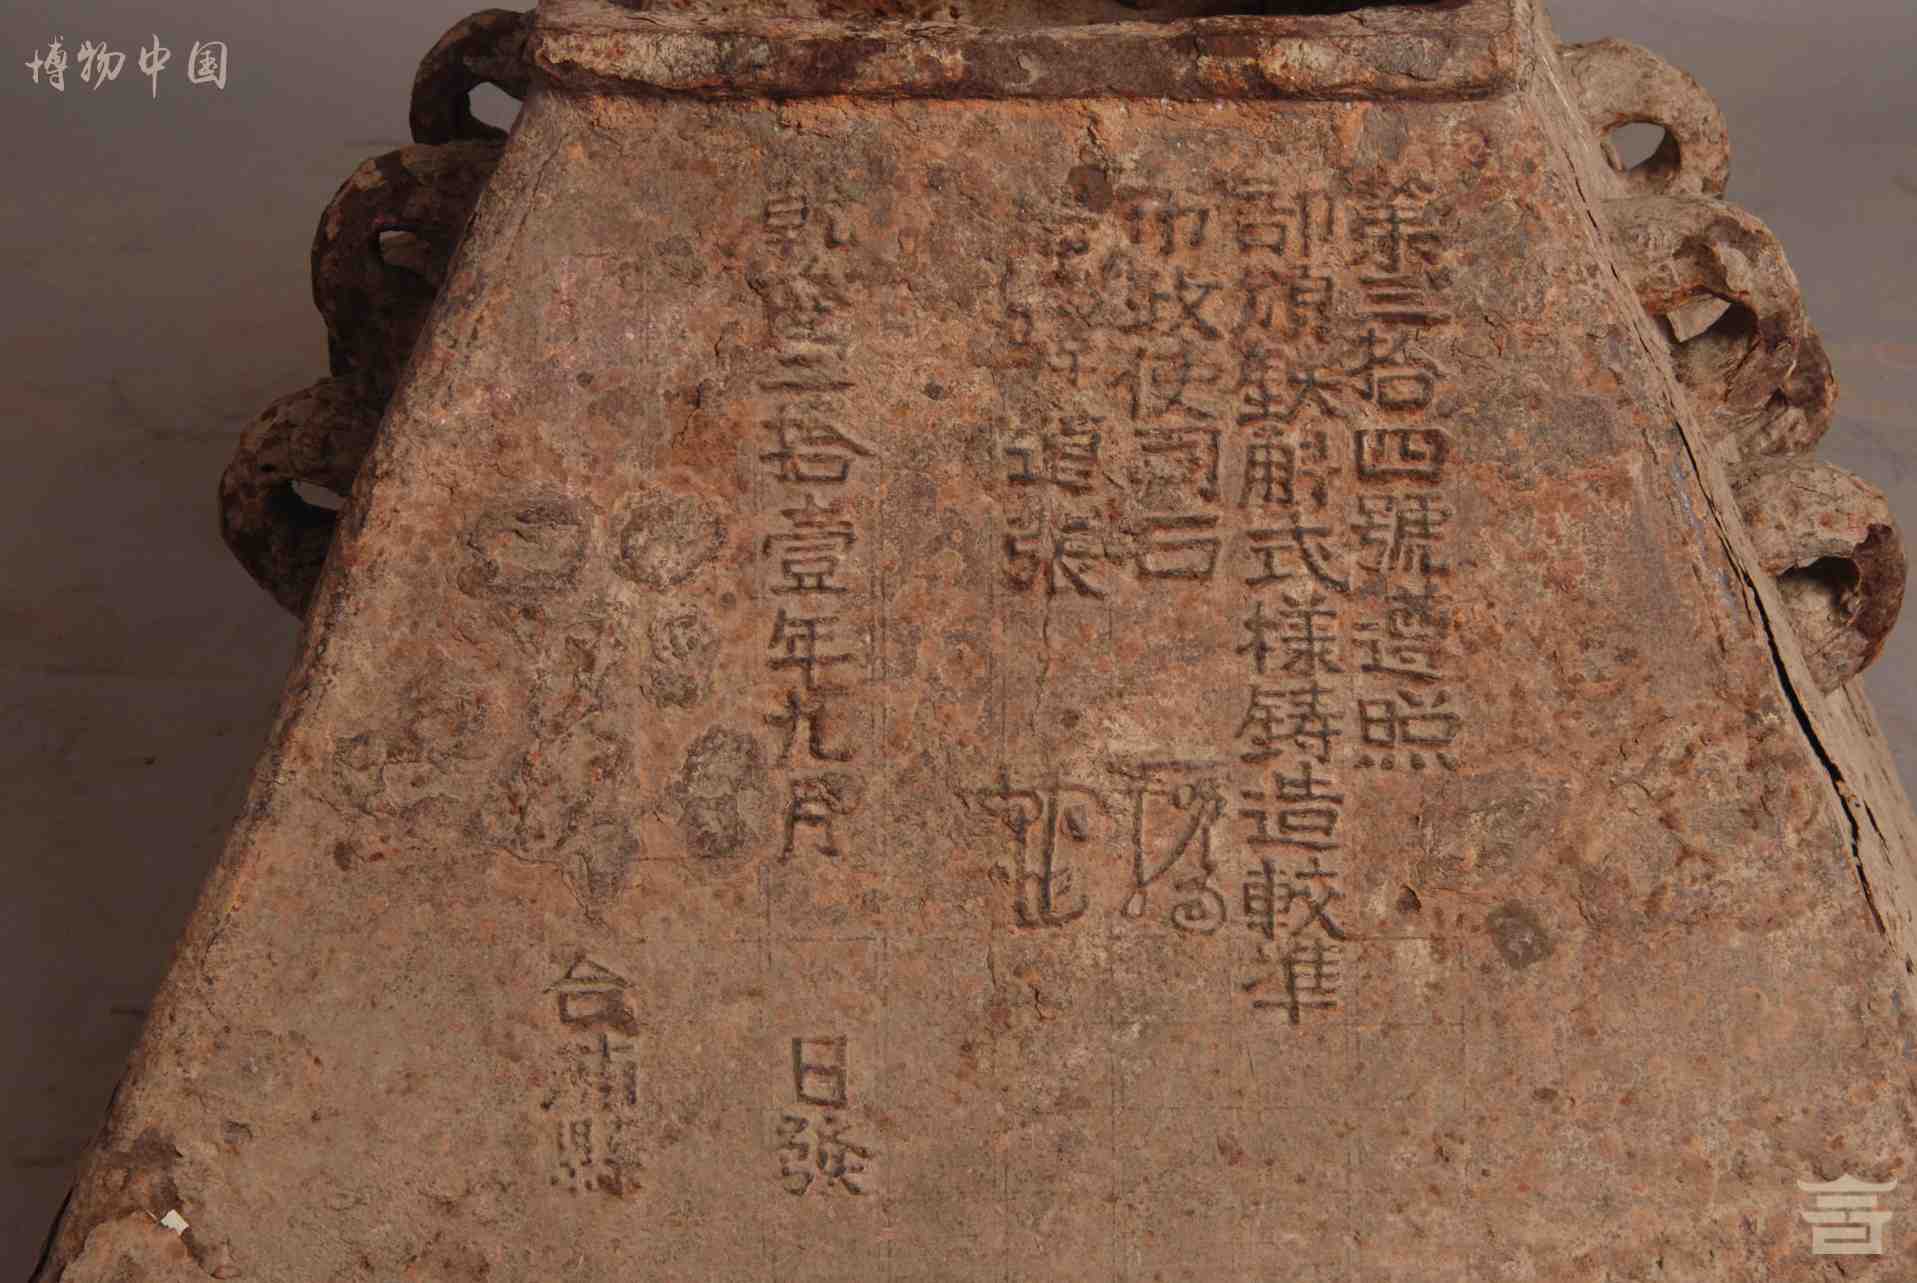 第三拾四號遵照
部頒鉄斛式樣鑄造較準
布政使司石
道張
乾隆三拾壹年九月 日發
合肅縣
博物中国